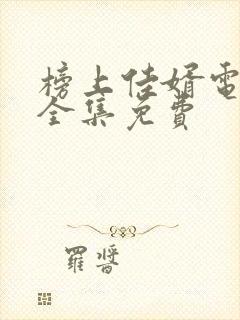 榜上佳婿電
全集免費
羅晉